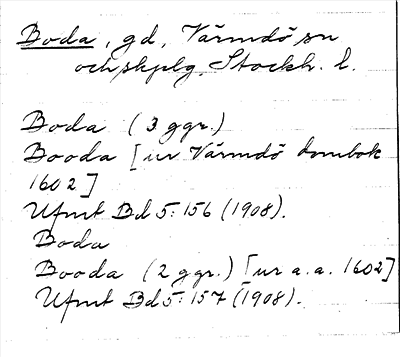 Boda, gd, Värmdö sn
och skplg, Stockh. l.
Boda (3 ggr.)
Booda [ur Värmdö dombok
1602]
Ufmt Bd 5:156 (1908).
Boda
Booda (2 ggr.) [ur a.a. 1602]
Ufmt Bd 5:157 (1908).